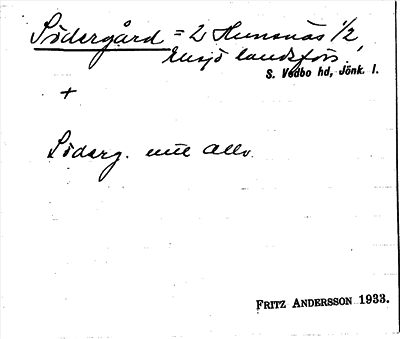 Södergård = 2 Hunsnäs 1/2,
Eksjö landsförs.
S. Vedbo hd, Jönk. l.
+
Söderg. mıt allv.
FRITZ ANDERSSON 1933.